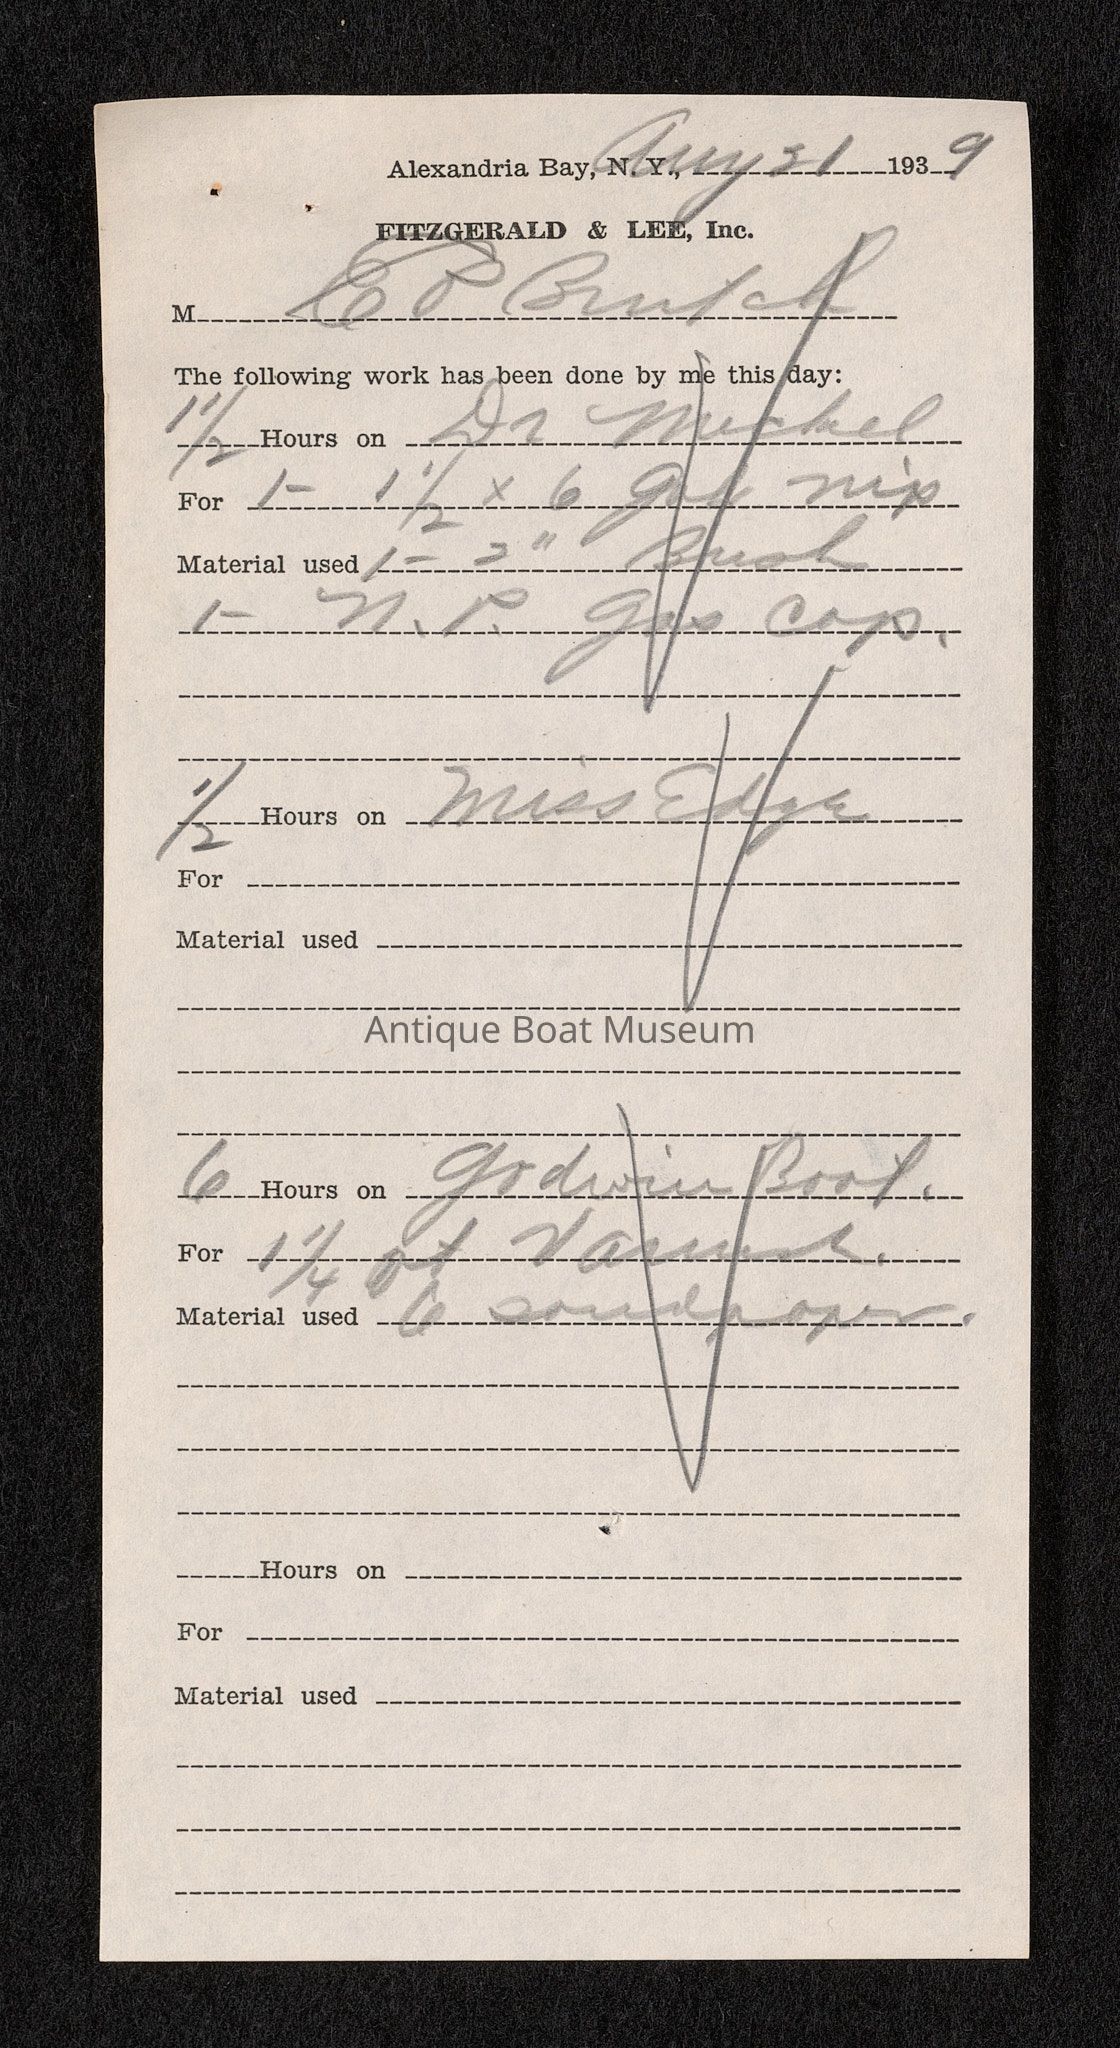 Alexandria Bay, N. Y., Aug 21 1939
FITZGERALD & LEE, Inc.
M E P
The following work has been done by me this day:
1 1/2 Hours on Dr
For 1- 1 1/2 x 6 Gal nip
Material used 1- 2" Bush
1- N. P. Gas Cap.
1/2 Hours on Miss Edge
For
Material used
Antique Boat Museum
6 Hours on Godwin Boat.
For 1 1/4 pt Varnish.
Material used 6 sandpaper.
Hours on
For
Material used